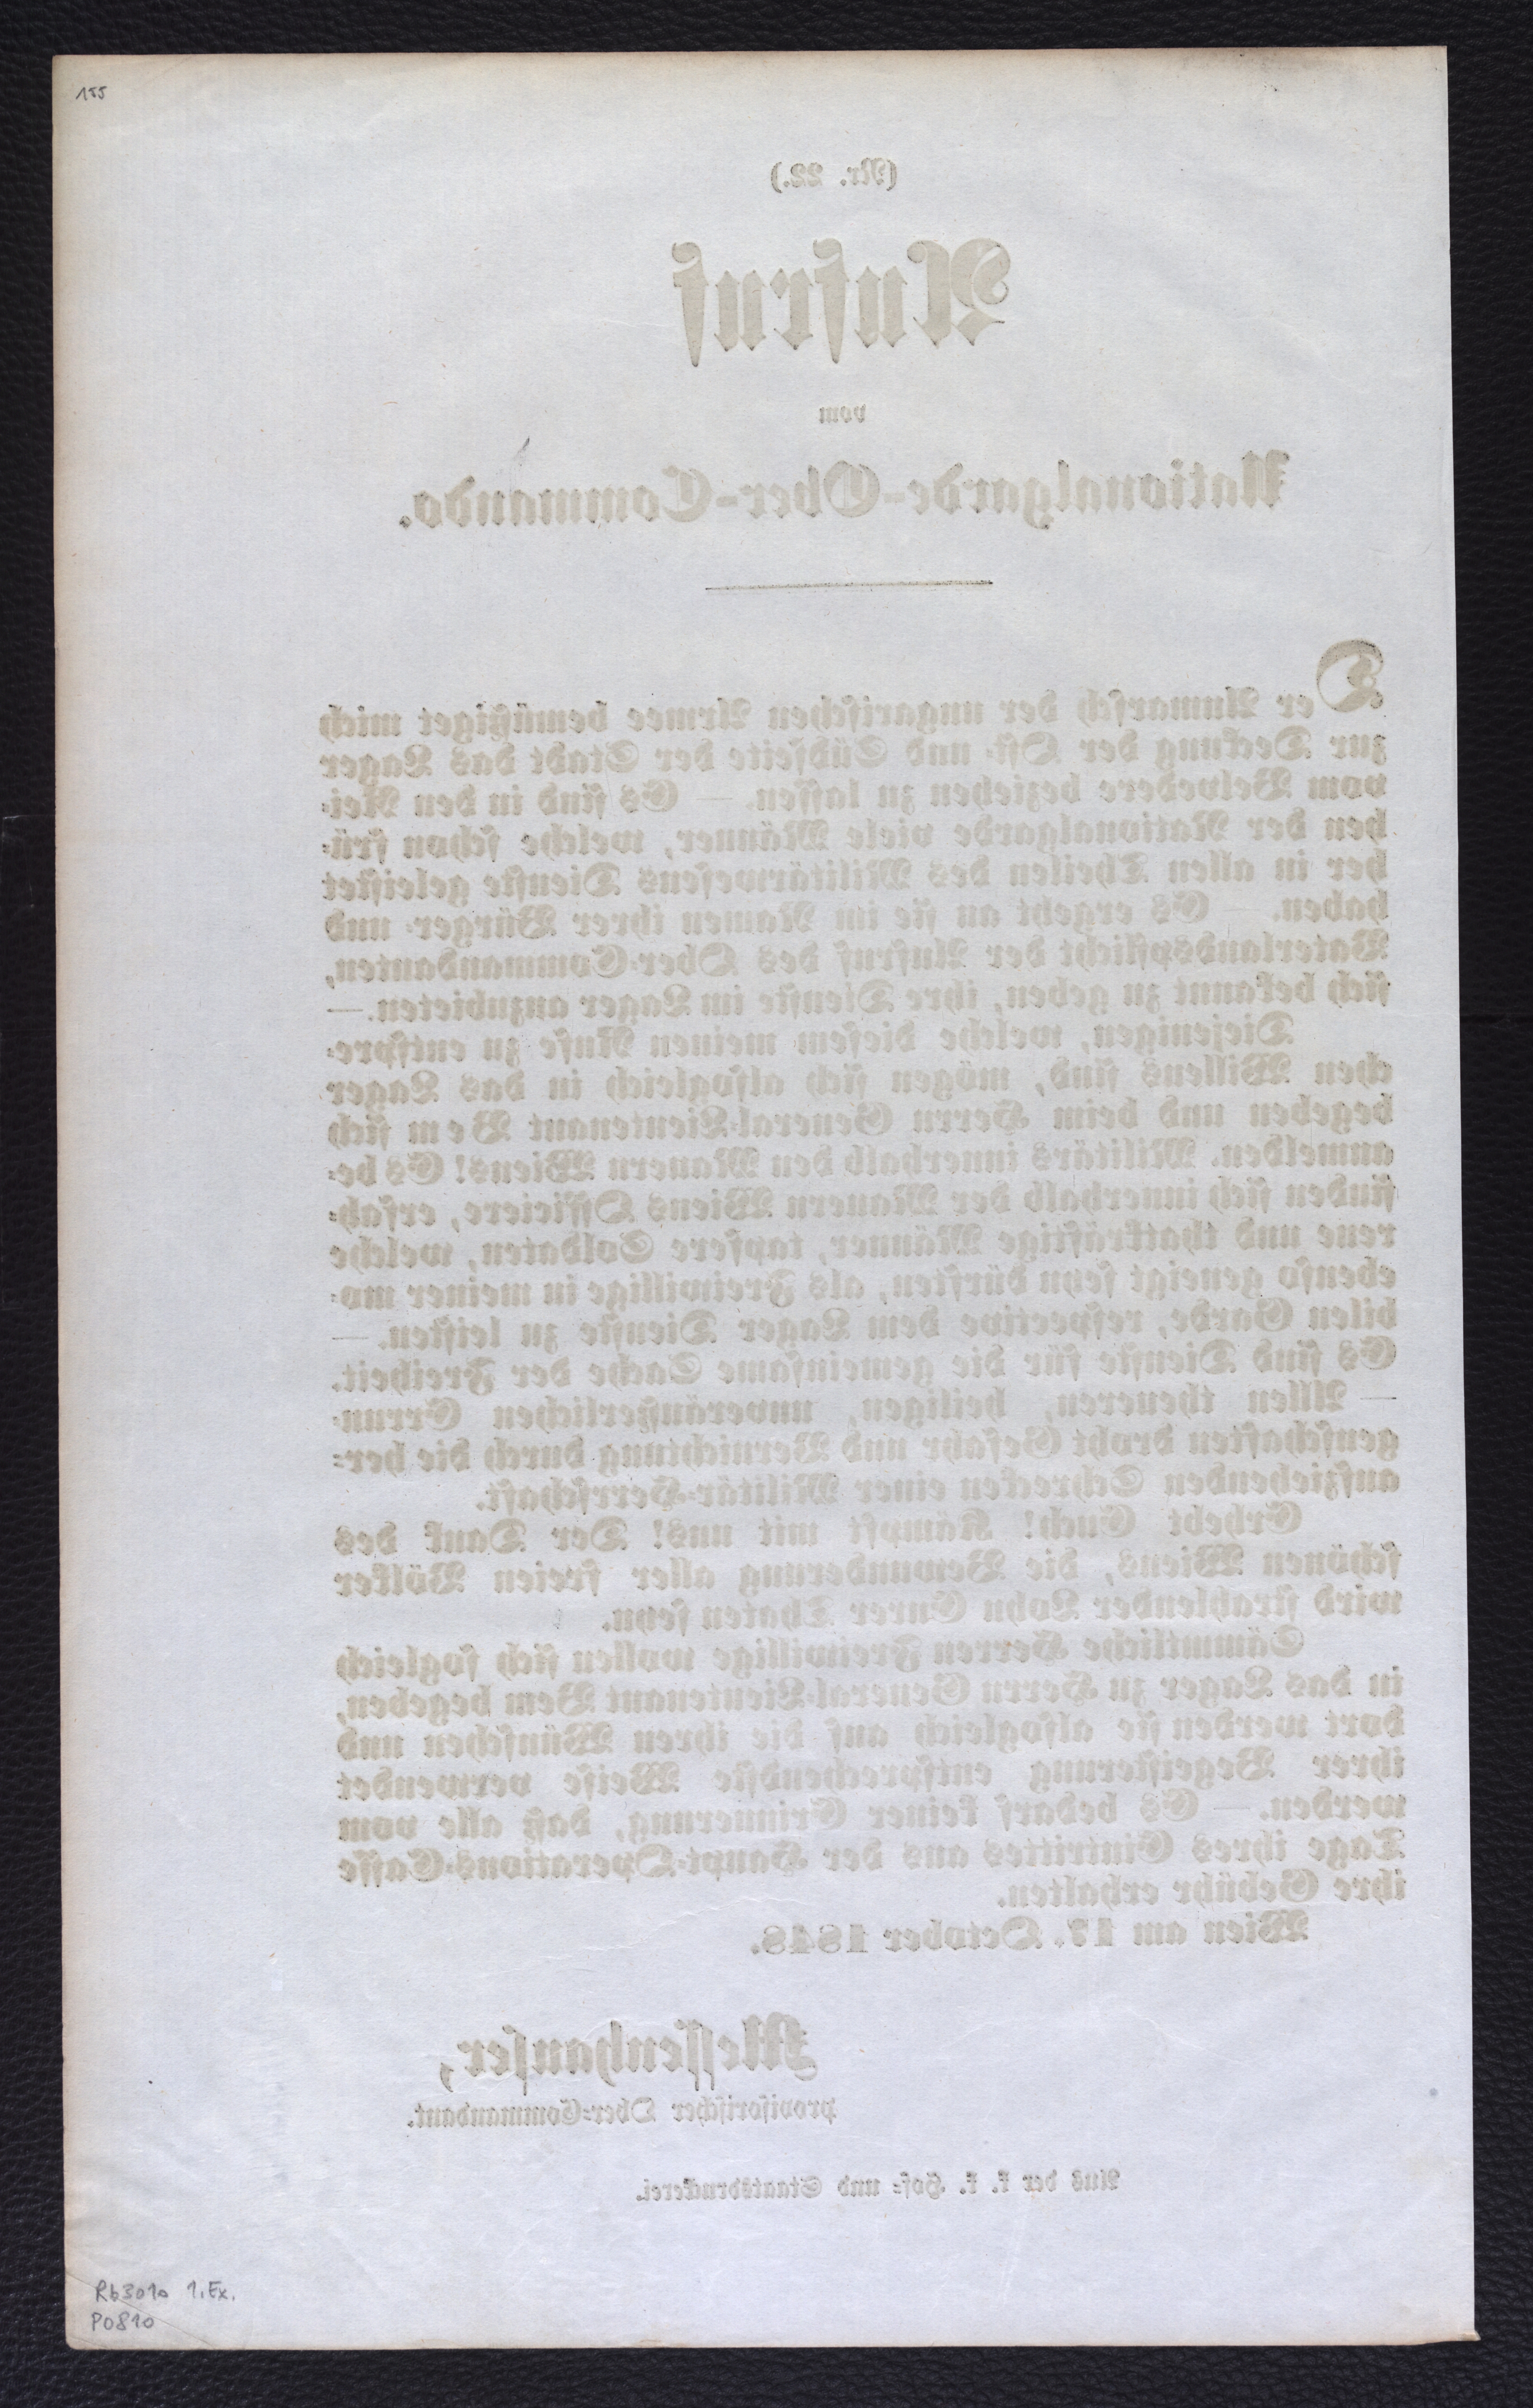 155
(Nr. 22.)
Aufruf
vom
Nationalgarde-Ober-Commando.
Der Anmarsch der ungarischen Armee bemüßiget mich
zur Deckung der Ost- und Südseite der Stadt das Lager
vom Belvedere beziehen zu lassen. — Es sind in den Rei-
hen der Nationalgarde viele Männer, welche schon frü-
her in allen Theilen des Militärwesens Dienste geleistet
haben. — Es ergeht an sie im Namen ihrer Bürger- und
Vaterlandspflicht der Aufruf des Ober-Commandanten,
sich bekannt zu geben, ihre Dienste im Lager anzubieten. —
Diejenigen, welche diesem meinen Rufe zu entspre-
chen Willens sind, mögen sich alsogleich in das Lager
begeben und beim Herrn General-Lieutenant Bem sich
anmelden. Militärs innerhalb den Mauern Wiens! Es be-
finden sich innerhalb der Mauern Wiens Officiere, erfah-
rene und thatkräftige Männer, tapfere Soldaten, welche
ebenso geneigt seyn dürften, als Freiwillige in meiner mo-
bilen Garde, respective dem Lager Dienste zu leisten. —
Es sind Dienste für die gemeinsame Sache der Freiheit.
— Allen theueren, heiligen, unveräußerlichen Errun-
genschaften droht Gefahr und Vernichtung durch die her-
aufziehenden Schrecken einer Militär-Herrschaft.
Erhebt Euch! Kämpft mit uns! Der Dank des
schönen Wiens, die Bewunderung aller freien Völker
wird strahlender Lohn Eurer Thaten seyn.
Sämmtliche Herren Freiwillige wollen sich sogleich
in das Lager zu Herrn General-Lieutenant Bem begeben,
dort werden sie alsogleich auf die ihren Wünschen und
ihrer Begeisterung entsprechendste Weise verwendet
werden. — Es bedarf keiner Erinnerung, daß alle vom
Tage ihres Eintrittes aus der Haupt-Operations-Casse
ihre Gebühr erhalten.
Wien am 17. October 1848.
Messenhauser,
provisorischer Ober-Commandant.
Aus der k. k. Hof- und Staatsdruckerei.
Rb3010 1.Ex.
P0810